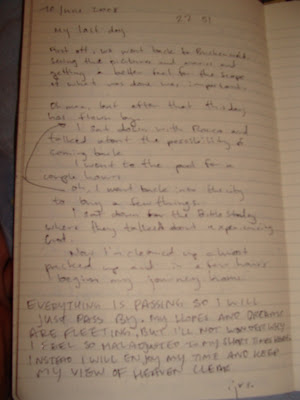 10 June 2008
22 51
My last day
Most off, we went back to Buchenwald.
Seeing the exhibits and movie and
getting a better feel for the scope
of what was done was important.
Oh man, but after that this day
has flown by.
I sat down with Bianca and
talked about the possibility of
coming back
I went to the pool for a
couple hours
oh, I went back into the city
to buy a few things.
I sat down for the Bible Study
where they talked about experiencing
God.
Now I'm cleaned up almost
packed up and in a few hours
I begin my journey home.
EVERYTHING IS PASSING SO I WILL
JUST PASS BY. MY HOPES AND DREAMS
ARE FLEETING, BUT I'LL NOT WONDER WHY
I FEEL SO MALADJUSTED TO MY SHORT TIME HERE
INSTEAD I WILL ENJOY MY TIME AND KEEP
MY VIEW OF HEAVEN CLEAR